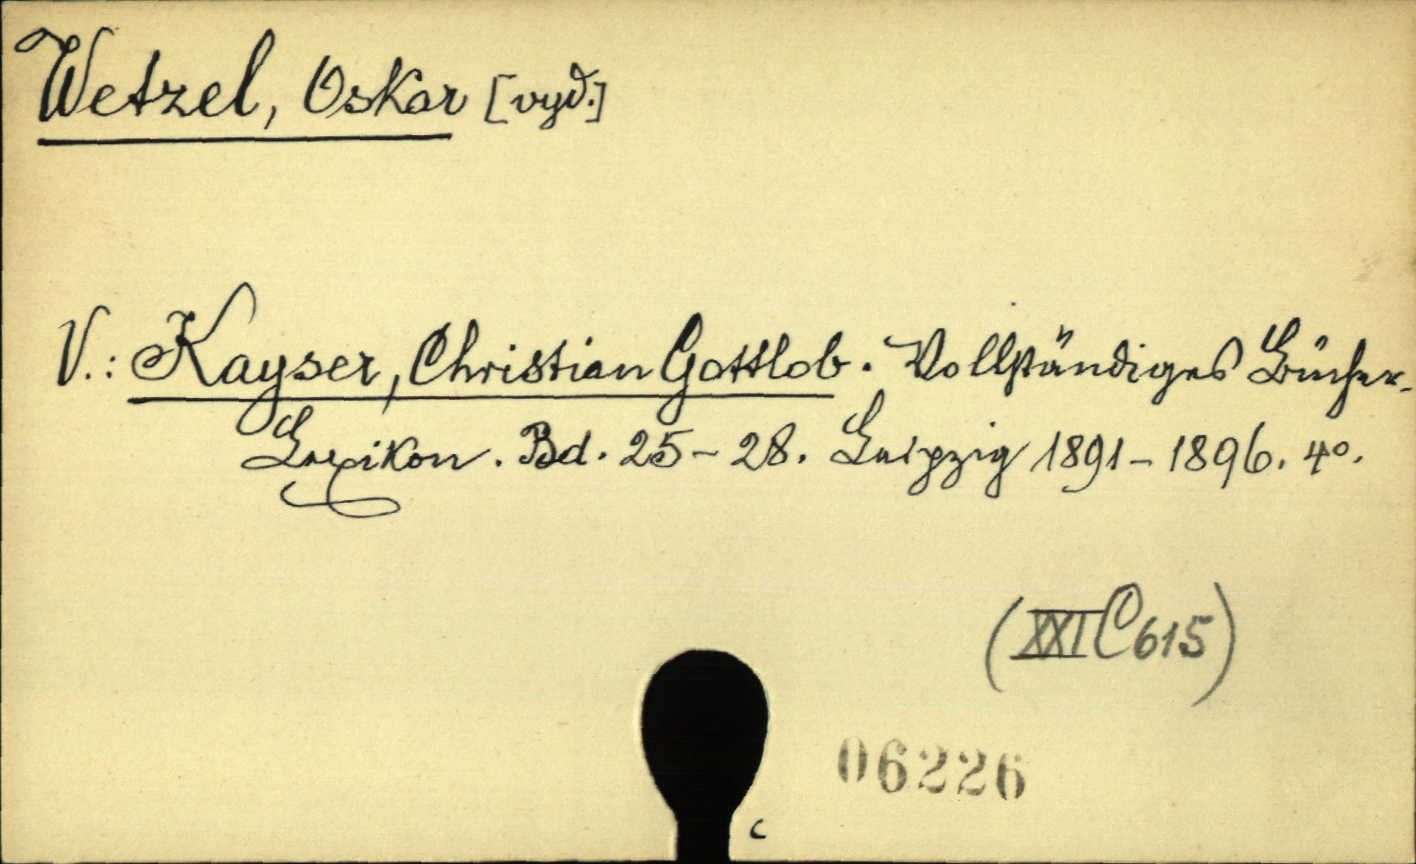 Wetzel, Oskar [vyd.]
V.: Kayser, Christian Gottlob. Vollständiges Bücher-
Lexikon. Bd. 25-28. Leipzig 1891-1896. 4°.
(XXI C 615)
06226
c